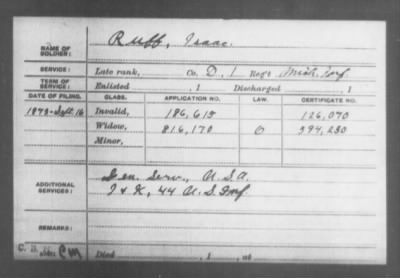 NAME OF SOLDIER: Ruff, Isaac.
SERVICE: Late rank, Co. D, 1 Reg't Mich. Inf.
TERM OF SERVICE: Enlisted , 1 Discharged , 1
DATE OF FILING. CLASS. APPLICATION NO. LAW. CERTIFICATE NO.
1873-Sept. 16 Invalid, 186,615 126,070
Widow, 816,170 O 594,230
Minor,
ADDITIONAL SERVICES: Gen. Serv., U.S.A.
I & K, 44 U.S. Inf.
REMARKS:
Died , 1 , at